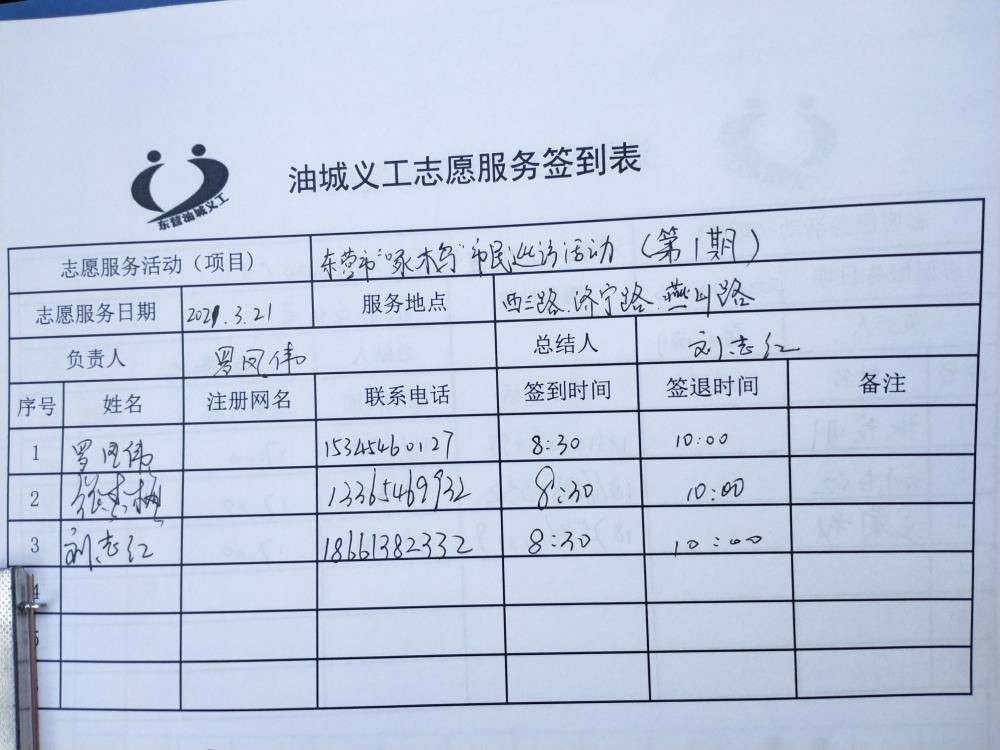 东营油城义工
油城义工志愿服务签到表
志愿服务活动（项目） 东营市"啄木鸟"市民巡访活动（第1期）
志愿服务日期 2021.3.21 服务地点 西三路.济宁路.燕山路
负责人 罗凤伟 总结人 刘志红
序号 姓名 注册网名 联系电话 签到时间 签退时间 备注
1 罗凤伟 15345460127 8:30 10:00
2 13365469932 8:30 10:00
3 刘志红 18661382332 8:30 10:00
4
5